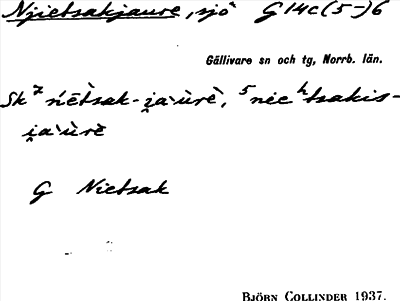 Njietsakjaure, sjö G 14c (5-) 6
Gällivare sn och tg, Norrb. län.
Sk ⁷ńētsak-i̯a`ùrè, ⁵nieʰtsakis-
i̯a`ùrĕ
G Nietsak
BJÖRN COLLINDER 1937.